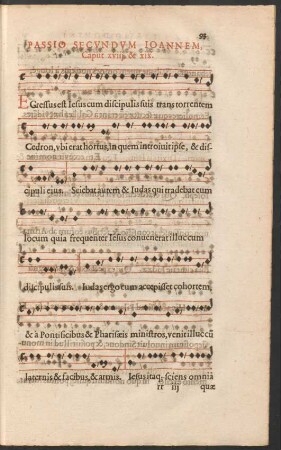 PASSIO SECVNDVM IOANNEM,
Caput xviij. & xix.
EGressus est Iesus cum discipulis suis trans torrentem
Cedron, vbi erat hortus, in quem introiuit ipse, & dis-
cipuli eius. Sciebat autem & Iudas qui tradebat eum
locum quia frequenter Iesus conuenerat illuc cum
discipulis suis. Iudas ergo cum accepisset cohortem
& à Pontificibus & Pharisæis ministros, venit illuc cũ
laternis & facibus, & armis. Iesus itaq; sciens omnia
rr iij quæ